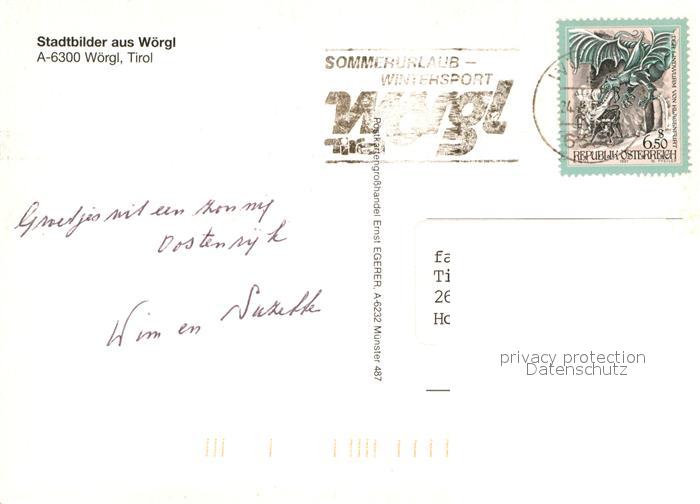 Stadtbilder aus Wörgl
A-6300 Wörgl, Tirol
SOMMERURLAUB –
WINTERSPORT
Wörgl
Tirol
DER LINDWURM VON KLAGENFURT
8
6.50
REPUBLIK ÖSTERREICH
Groetjes uit een zonnig
Oostenrijk
Wim en Suzette
Postkartengroßhandel Ernst EGERER, A-6232 Münster 487
fa
Ti
26
Ho
privacy protection
Datenschutz